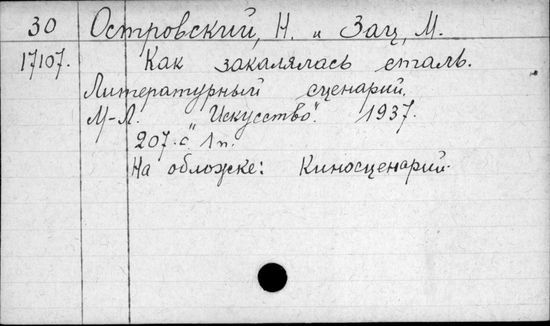 30 Островский, Н. и Зац, М.
17107. Как закалялась сталь.
Литературный сценарий.
М-Л. "Искусство". 1937.
207 с. 1 п.
На обложке: Киносценарий.